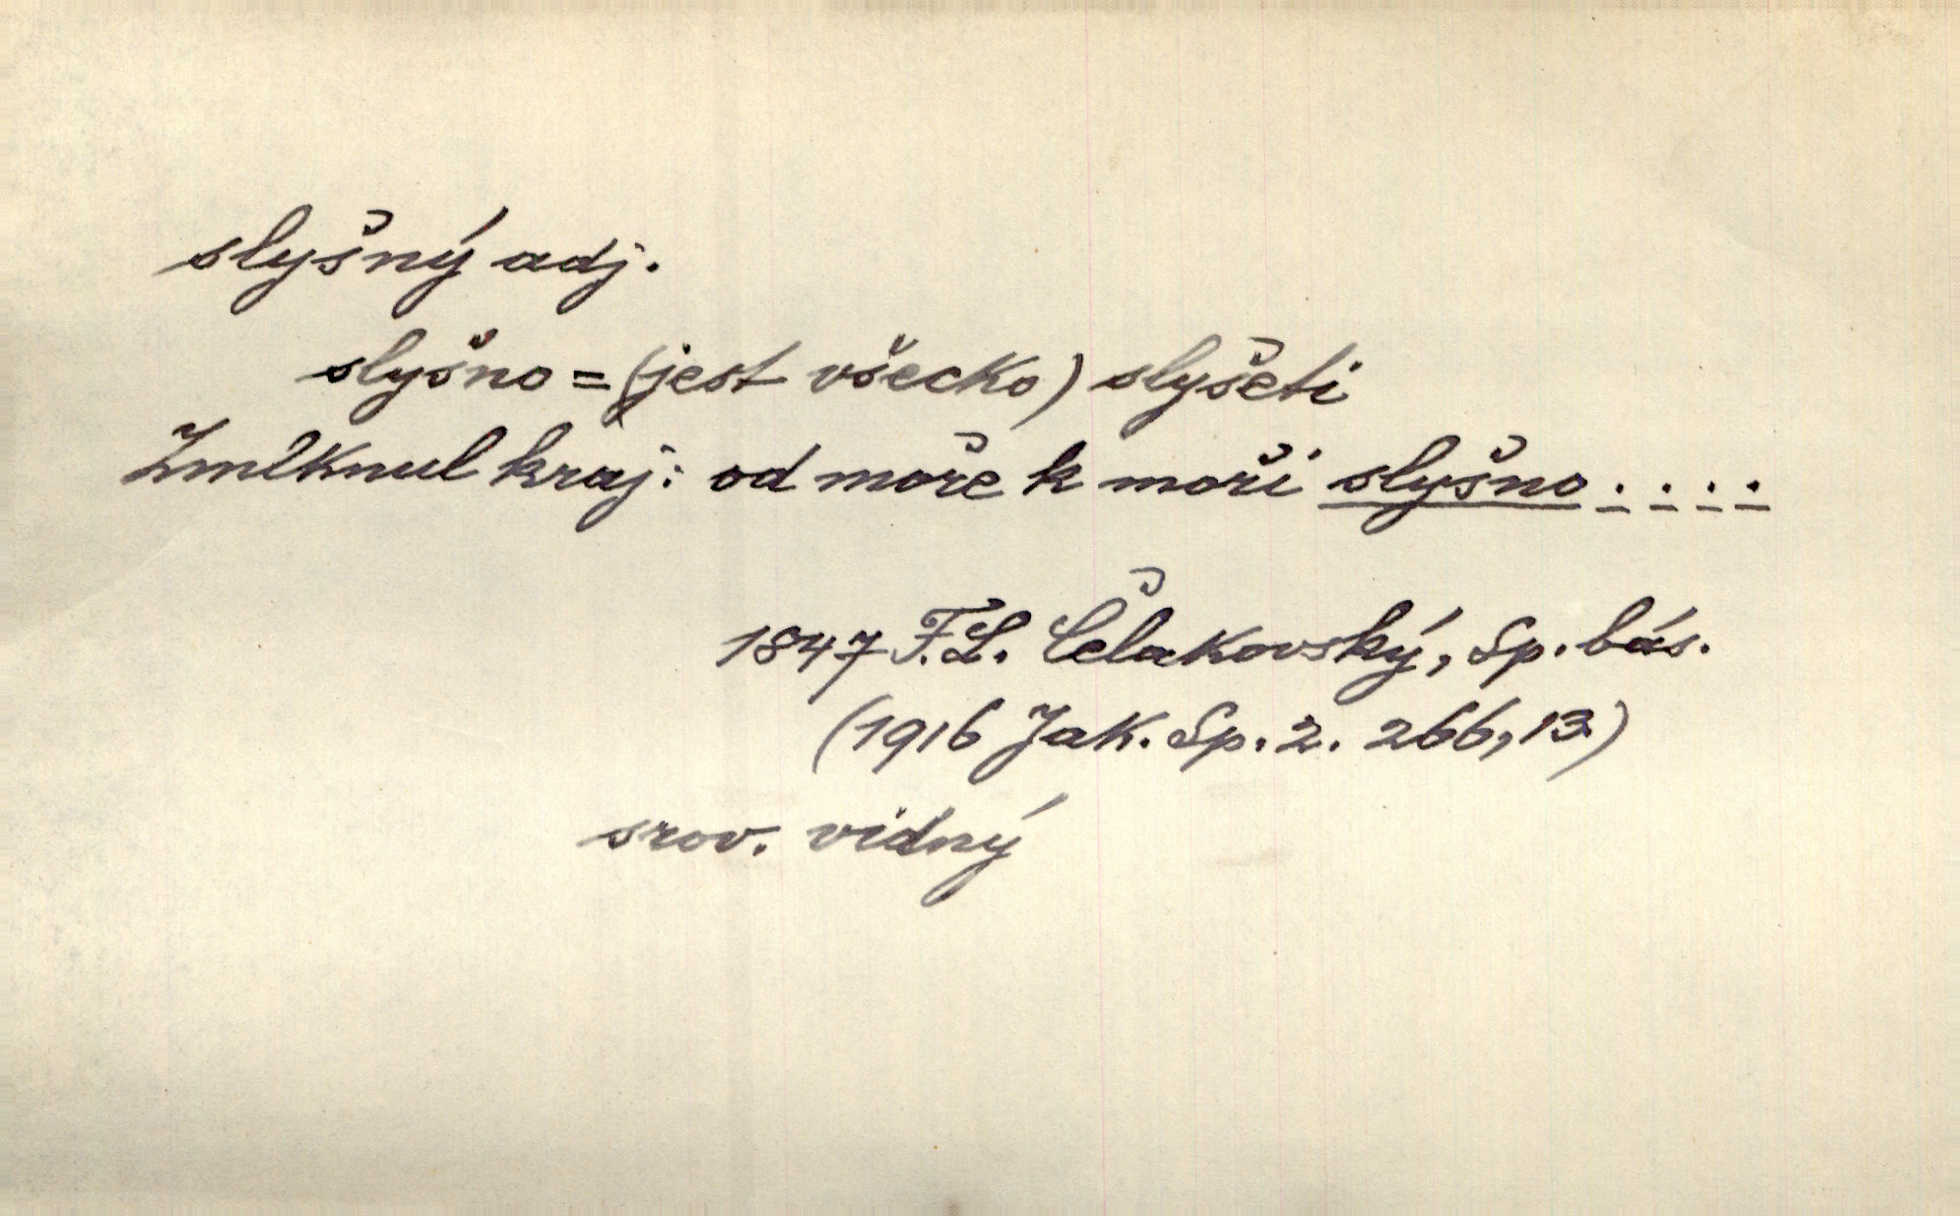 slyšný adj.
slyšno = (jest všecko) slyšeti
Zmlknul kraj: od moře k moři slyšno....
1847 F.L. Čelakovský, Sp. bás.
(1916 Jak. Sp. 2. 266,13)
srov. vidný